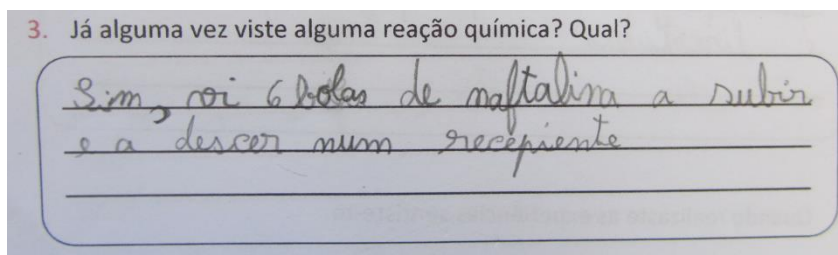 3. Já alguma vez viste alguma reação química? Qual?
Sim, vi 6 bolas de naftalina a subir
e a descer num recepiente